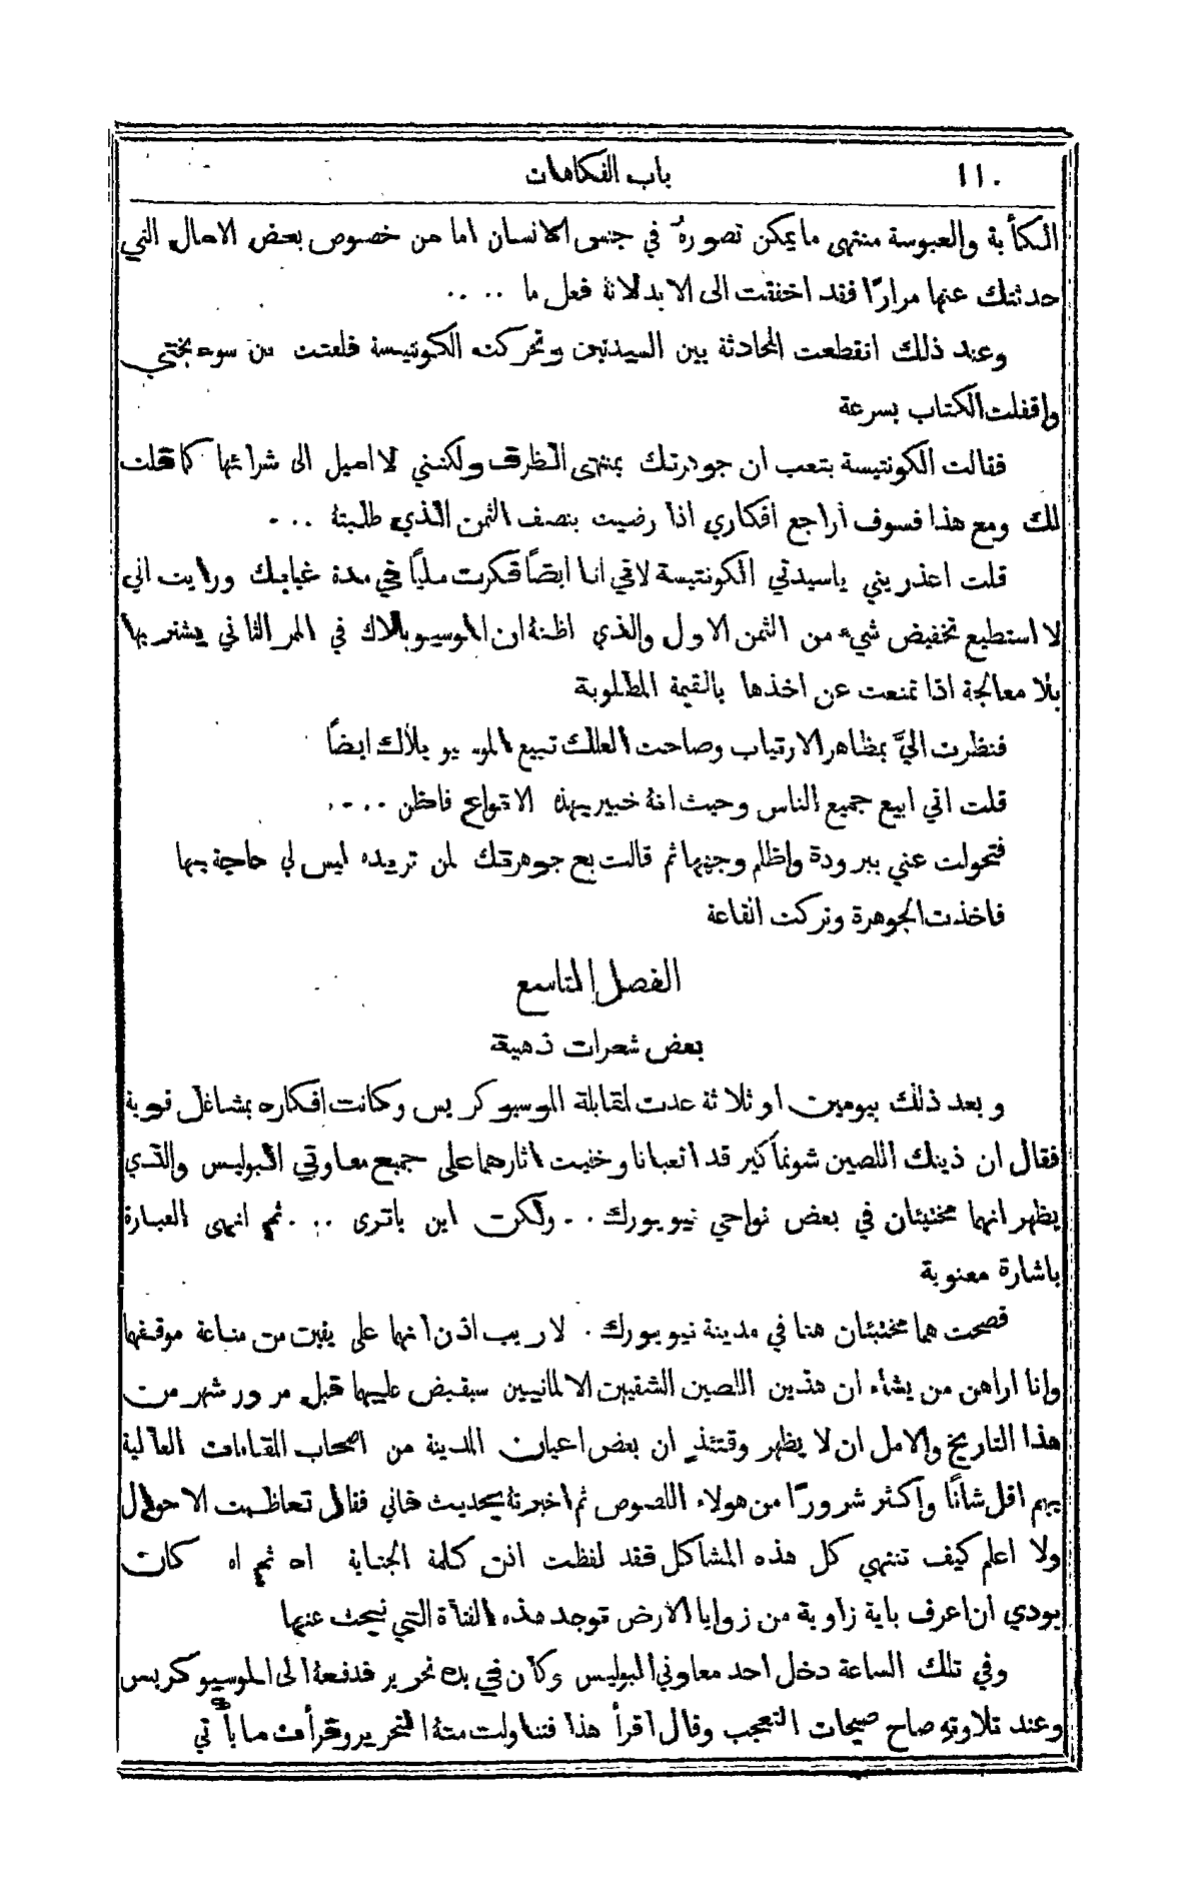 ١١٠ باب الفكاهات
الكأبة والعبوسة منتهى ما يمكن تصوره في جنس الانسان اما من خصوص بعض الامال التي
حدثتك عنها مرارًا فقد اخفقت الى الابد لانه فعل ما ....
وعند ذلك انقطعت المحادثة بين السيدتين وتحركت الكونتيسة فلعنت من سوء بختي
واقفلت الكتاب بسرعة
فقالت الكونتيسة بتعب ان جوهرتك بمنتهى الظرف ولكنني لا اميل الى شرائها كما قلت
لك ومع هذا فسوف اراجع افكاري اذا رضيت بنصف الثمن الذي طلبته ...
قلت اعذريني ياسيدتي الكونتيسة لاني انا ايضًا فكرت مليًا في مدة غيابك ورايت اني
لا استطيع تخفيض شيء من الثمن الاول والذي اظنه ان الموسيو بالاك في الممر الثاني يشتريها
بلا معالجة اذا تمنعت عن اخذها بالقيمة المطلوبة
فنظرت اليَّ بمظاهر الارتياب وصاحت العلك تبيع الموسيو بلاك ايضًا
قلت اني ابيع جميع الناس وحيث انه خبير بهذه الانواع فاظن ....
فتحولت عني ببرودة واظلم وجهها ثم قالت بع جوهرتك لمن تريده ليس لي حاجة بها
فاخذت الجوهرة وتركت القاعة
الفصل التاسع
بعض شعرات ذهبية
وبعد ذلك بيومين او ثلاثة عدت لمقابلة الموسيو كريس وكانت افكاره بمشاغل قوية
فقال ان ذينك اللصين شونماكير قد اتعبانا وخفيت اثارهما على جميع معاوني البوليس والذي
يظهر انهما مختبئان في بعض نواحي نيويورك .. ولكن اين ياترى ... ثم انهى العبارة
باشارة معنوية
فصحت هما مختبئان هنا في مدينة نيويورك . لاريب اذن انهما على يقين من مناعة موقفهما
وانا اراهن من يشاء ان هذين اللصين الشقيين الالمانيين سيقبض عليهما قبل مرور شهر من
هذا التاريخ والامل ان لا يظهر وقتئذٍ ان بعض اعيان المدينة من اصحاب القاءات العالية
بهم اقل شانًا واكثر شرورًا من هولاء اللصوص ثم اخبرته بحديث فاني فقال تعاظمت الاحوال
ولا اعلم كيف تنتهي كل هذه المشاكل فقد لفظت اذن كلمة الجناية اه ثم اه كان
بودي ان اعرف باية زاوية من زوايا الارض توجد هذه الفتاة التي نبحث عنها
وفي تلك الساعة دخل احد معاوني البوليس وكان في يده تحرير فدفعه الى الموسيو كريس
وعند تلاوتهِ صاح صيحات التعجب وقال اقرأ هذا فتناولت منه التحرير وقرأت ما يأتي